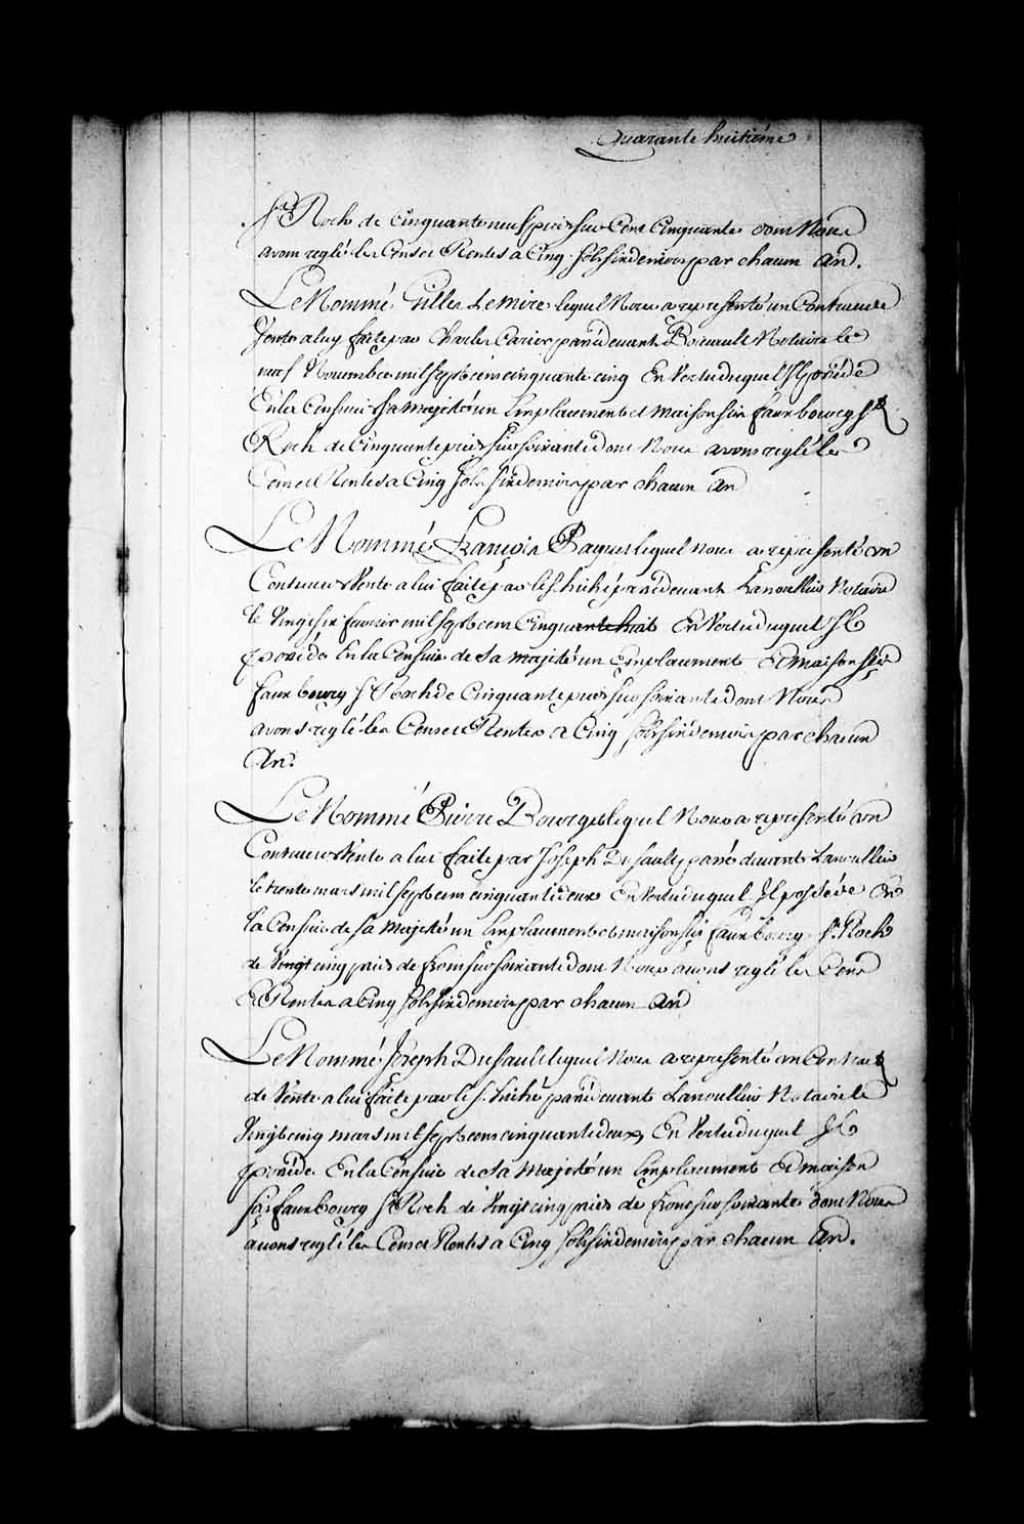 Quarante huitième
St Roch de cinquante neuf pieds sur Cent Cinquante dont Nous
avons reglé les Cens et Rentes a Cinq sols six deniers par chacun An.
Le Nommé Gilles Lemire lequel Nous a representé un Contract de
Vente a luy faite par Charles Carier passé devant Boisseault Notaire le
neuf Novembre mil sept cens cinquante cinq En Vertu duquel Il possède
En la Censive de Sa Majesté un Emplacement et maison sis faux bourg St
Roch de Cinquante pieds sur soixante dont Nous avons reglé les
Cens et Rentes a Cinq sols six deniers par chacun An
Le Nommé François Paquet lequel nous a representé un
Contract de Vente a lui faite par le S. huché passé devant Lanoullier Notaire
le Vingt six fevrier mil sept cens Cinquante huit En Vertu duquel Il
possède En la Censive de Sa Majesté un Emplacement et maison sis
faux bourg St Roch de Cinquante pieds sur soixante dont Nous
avons reglé les Cens et Rentes a Cinq sols six deniers par chacun
An.
Le Nommé Pierre Bourget lequel Nous a representé un
Contract de Vente a lui faite par Joseph Dusault passé devant Lanoullier
le trente mars mil sept cens cinquante deux En Vertu duquel Il possède En
la Censive de Sa Majesté un Emplacement et maison sis faux bourg St Roch
de Vingt cinq pieds de front sur soixante dont Nous avons reglé les Cens
Et Rentes a Cinq sols six deniers par chacun An
Le Nommé Joseph Dusault lequel Nous a representé un Contract
de Vente a lui faite par le S. huché passé devant Lanoullier Notaire le
Vingt cinq mars mil sept cens cinquante deux En Vertu duquel Il
possède En la Censive de Sa Majesté un Emplacement et maison
sis faux bourg St Roch de Vingt cinq pieds de front sur soixante dont Nous
avons reglé les Cens et Rentes a Cinq sols six deniers par chacun An.